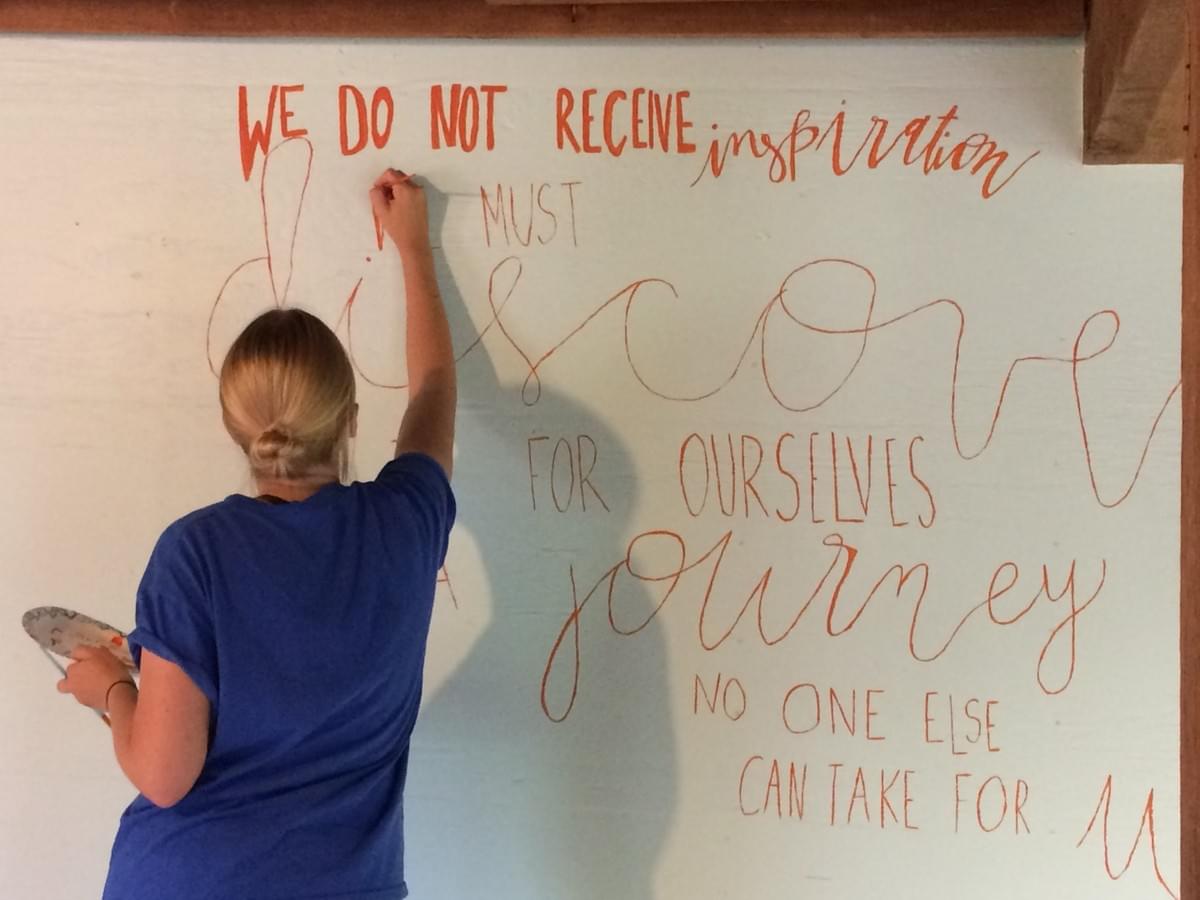 WE DO NOT RECEIVE inspiration
MUST
discove
FOR OURSELVES
A journey
NO ONE ELSE
CAN TAKE FOR u